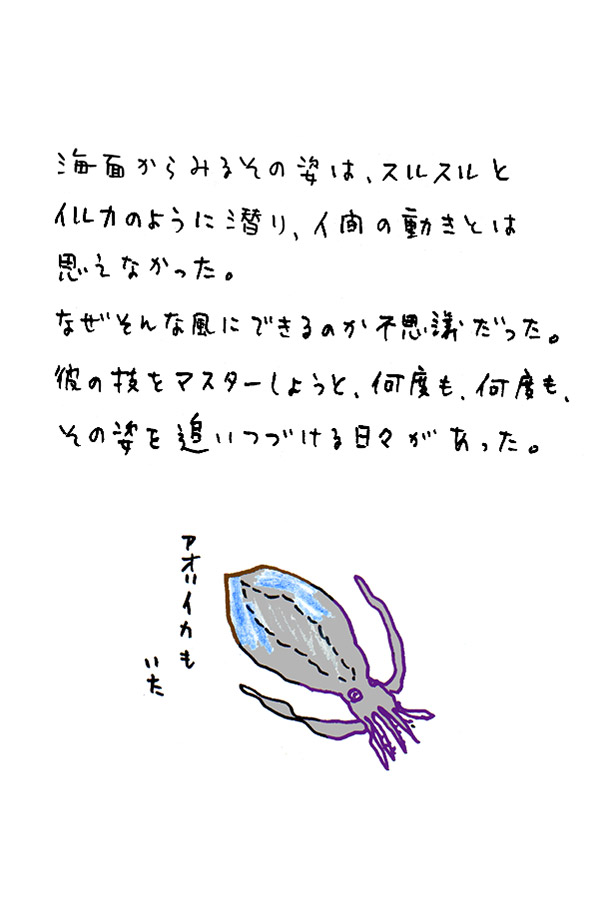 海面からみるその姿は、スルスルと
イルカのように潜り、人間の動きとは
思えなかった。
なぜそんな風にできるのか不思議だった。
彼の技をマスターしようと、何度も、何度も、
その姿を追いつづける日々があった。
アオリイカも
いた